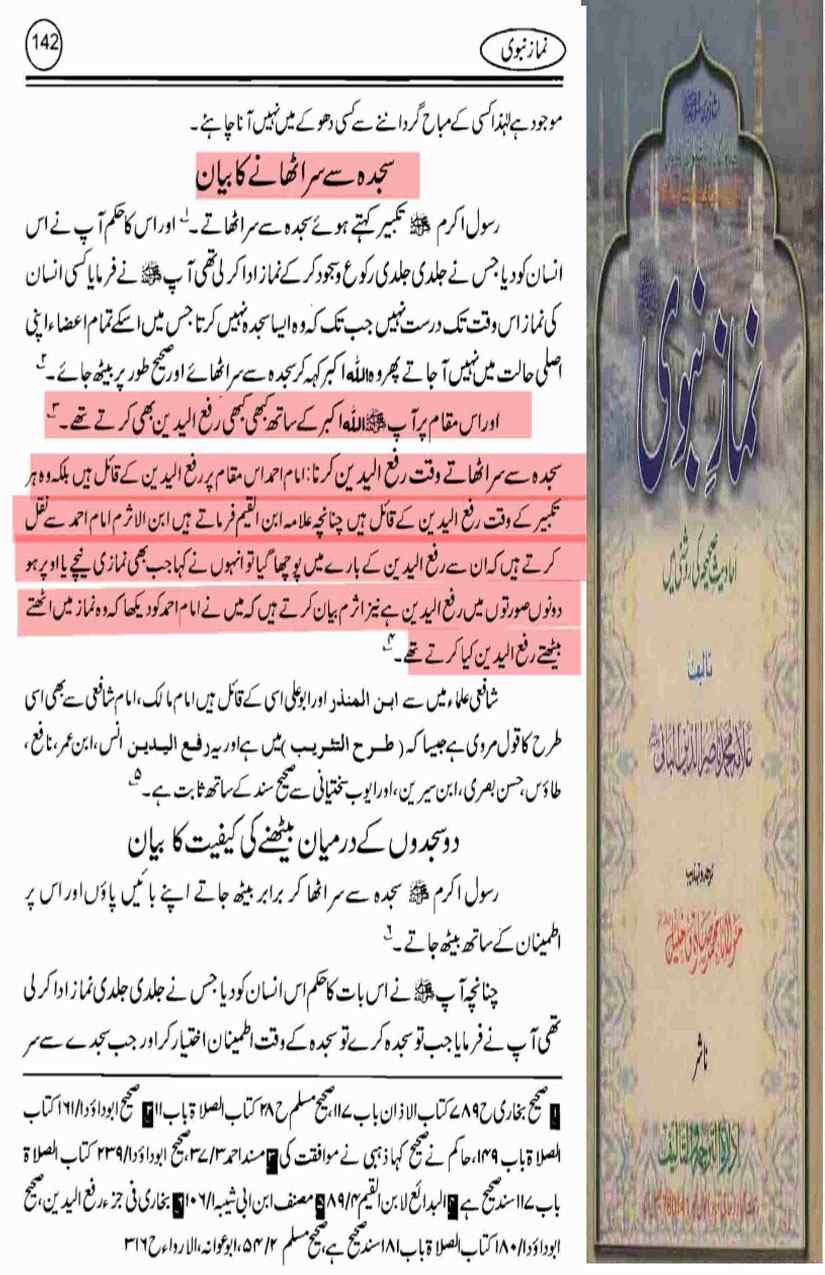 نماز نبوی
142
موجود ہے لہٰذا کسی کے مباح گرداننے سے کسی دھوکے میں نہیں آنا چاہئے۔
سجدہ سے سر اٹھانے کا بیان
رسول اکرم ﷺ تکبیر کہتے ہوئے سجدہ سے سر اٹھاتے۔۱ اور اس کا حکم آپ نے اس
انسان کو دیا جس نے جلدی جلدی رکوع و سجود کر کے نماز ادا کر لی تھی آپ ﷺ نے فرمایا کسی انسان
کی نماز اس وقت تک درست نہیں جب تک کہ وہ ایسا سجدہ نہیں کرتا جس میں اسکے تمام اعضاء اپنی
اصلی حالت میں نہیں آ جاتے پھر وہ اللہ اکبر کہہ کر سجدہ سے سر اٹھائے اور صحیح طور پر بیٹھ جائے۔۲
اور اس مقام پر آپ ﷺ اللہ اکبر کے ساتھ کبھی کبھی رفع الیدین بھی کرتے تھے۔۳
سجدہ سے سر اٹھاتے وقت رفع الیدین کرنا: امام احمد اس مقام پر رفع الیدین کے قائل ہیں بلکہ وہ ہر
تکبیر کے وقت رفع الیدین کے قائل ہیں چنانچہ علامہ ابن القیم فرماتے ہیں ابن الاثرم امام احمد سے نقل
کرتے ہیں کہ ان سے رفع الیدین کے بارے میں پوچھا گیا تو انہوں نے کہا جب بھی نمازی نیچے یا اوپر ہو
دونوں صورتوں میں رفع الیدین ہے نیز اثرم بیان کرتے ہیں کہ میں نے امام احمد کو دیکھا کہ وہ نماز میں اٹھتے
بیٹھتے رفع الیدین کیا کرتے تھے۔۴
شافعی علماء میں سے ابن المنذر اور ابو علی اسی کے قائل ہیں امام مالک، امام شافعی سے بھی اسی
طرح کا قول مروی ہے جیسا کہ (طرح التثریب) میں ہے اور یہ رفع الیدین انس، ابن عمر، نافع،
طاؤس، حسن بصری، ابن سیرین، اور ایوب سختیانی سے صحیح سند کے ساتھ ثابت ہے۔۵
دو سجدوں کے درمیان بیٹھنے کی کیفیت کا بیان
رسول اکرم ﷺ سجدہ سے سر اٹھا کر برابر بیٹھ جاتے اپنے بائیں پاؤں اور اس پر
اطمینان کے ساتھ بیٹھ جاتے۔۶
چنانچہ آپ ﷺ نے اس بات کا حکم اس انسان کو دیا جس نے جلدی جلدی نماز ادا کر لی
تھی آپ نے فرمایا جب تو سجدہ کرے تو سجدہ کے وقت اطمینان اختیار کر اور جب سجدے سے سر
۱ صحیح بخاری ح ۷۸۹ کتاب الاذان باب ۱۱۷، صحیح مسلم ح ۲۸ کتاب الصلاۃ باب ۱۱ ۲ صحیح ابوداؤد ۱/۱۶۱ کتاب
الصلاۃ باب ۱۴۹، حاکم نے صحیح کہا ذہبی نے موافقت کی ۳ مسند احمد ۳/۳۷، صحیح ابوداؤد ۱/۲۳۹ کتاب الصلاۃ
باب ۱۱۷ سند صحیح ہے ۴ البدائع لابن القیم ۴/۸۹ ۵ مصنف ابن ابی شیبہ ۱/۱۰۶ ۶ بخاری فی جزء رفع الیدین، صحیح
ابوداؤد ۱/۱۸۰ کتاب الصلاۃ باب ۱۸۱ سند صحیح ہے، صحیح مسلم ۲/۵۴، ابوعوانہ، الارواء ح ۳۱۶
نمازِ نبوی
احادیث صحیحہ کی روشنی میں
تالیف
علامہ محمد ناصر الدین البانی
ترجمہ و تہذیب
مولانا محمد صادق خلیل
ناشر